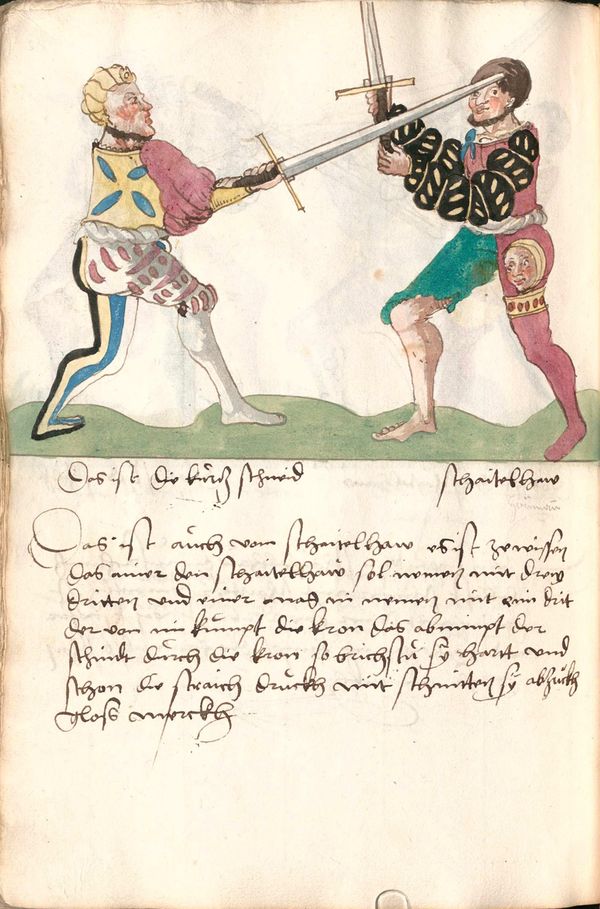 Das ist die kürtz schneid
schaitelhaw
Das ist auch vom schaitelhaw es ist zewissen
das ainer den schaitelhaw sol nemen mit dreẏ
dritten und einer mag in nemen mit ein drit
der von im kumpt die kron das abnimpt der
schnidt durch die kron so brichstu sy hartt und
schon die straich druckh mit schnitten sy abzuckh
gloss merckh